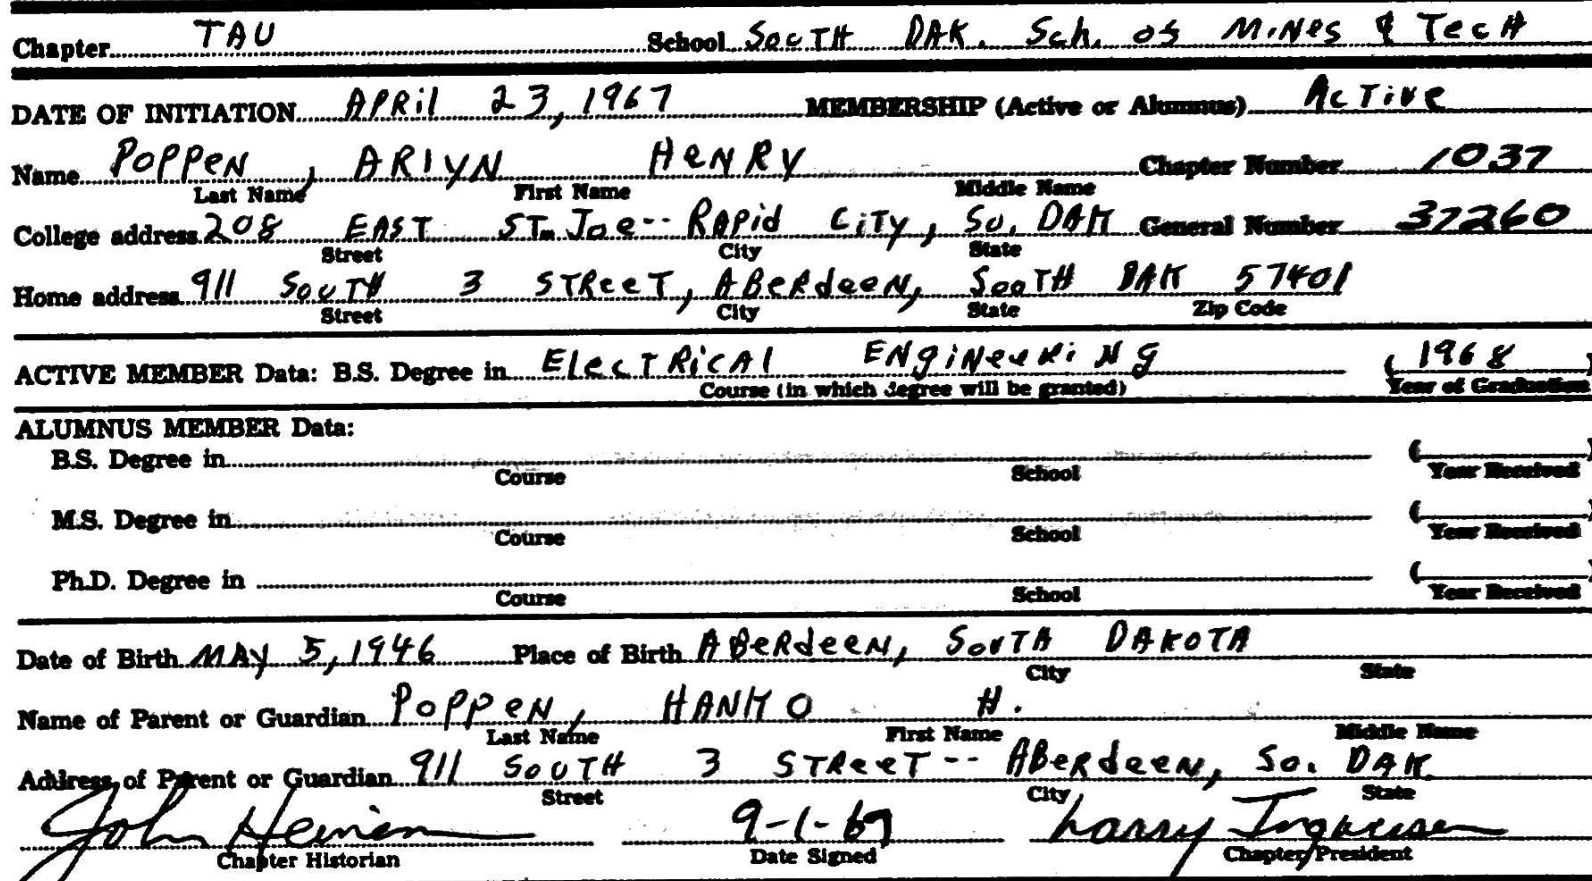 Chapter TAU School SouTH DAK. Sch. of MiNes & TecH
DATE OF INITIATION APRil 23, 1967 MEMBERSHIP (Active or Alumnus) AcTive
Name POPPEN, ARlYN HENRY Chapter Number 1037
Last Name First Name Middle Name
College address 208 EAST ST. Joe -- RAPid CiTY, SO. DAK General Number 37260
Street City State
Home address 911 SouTH 3 STReeT, ABeRdeeN, SouTH DAK 57401
Street City State Zip Code
ACTIVE MEMBER Data: B.S. Degree in ElecTRicAl ENgiNeeRiNg (1968)
Course (in which degree will be granted) Year of Graduation
ALUMNUS MEMBER Data:
B.S. Degree in ( )
Course School Year Received
M.S. Degree in ( )
Course School Year Received
Ph.D. Degree in ( )
Course School Year Received
Date of Birth MAY 5, 1946 Place of Birth ABeRdeeN, SouTH DAKOTA
City State
Name of Parent or Guardian POPPEN, HANKO H.
Last Name First Name Middle Name
Address of Parent or Guardian 911 SOUTH 3 STReeT -- ABeRdeeN, So. DAK.
Street City State
John Heinen 9-1-67 Larry
Chapter Historian Date Signed Chapter President